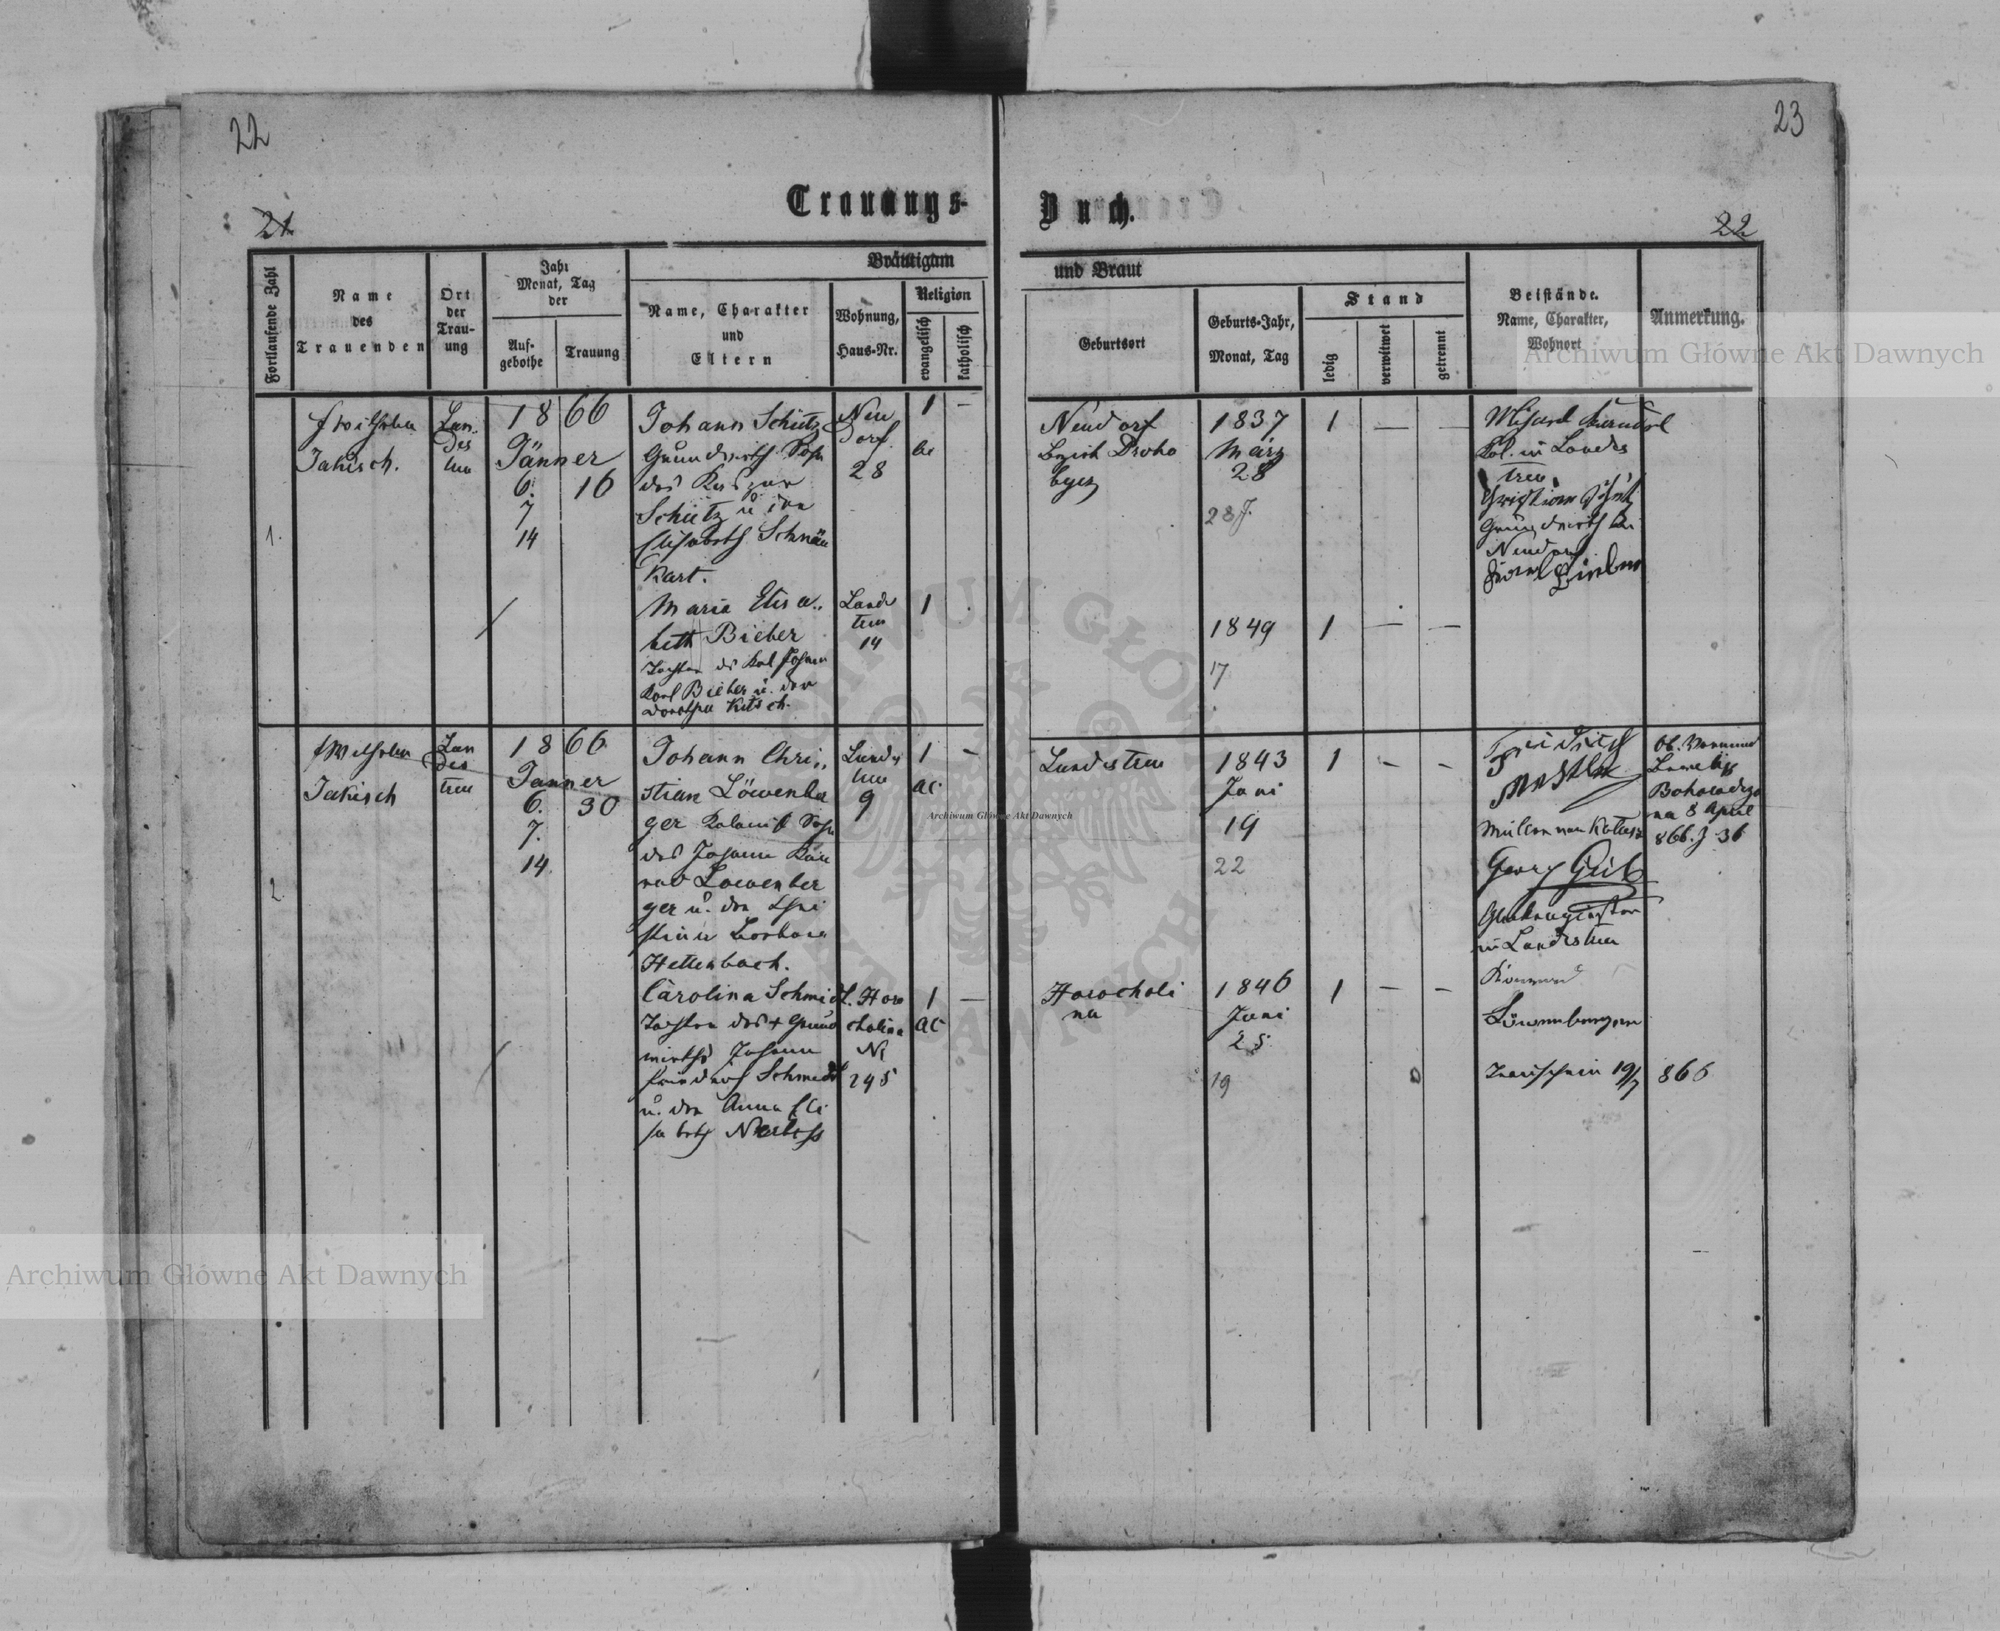 22
23
Trauungs-
Buch.
21
22
Fortlaufende Zahl
Name
des
Trauenden
Ort
der
Trau-
ung
Jahr
Monat, Tag
der
Auf-
gebothe
Trauung
Bräutigam
Name, Charakter
und
Eltern
Wohnung,
Haus-Nr.
Religion
evangelisch
katholisch
und Braut
Geburtsort
Geburts-Jahr,
Monat, Tag
Stand
ledig
verwitwet
getrennt
Beistände.
Name, Charakter,
Wohnort
Anmerkung.
1.
Wilhelm
Jakisch.
Lan-
des
treu
1866
Jänner
6. 16
7
14
Johann Schütz
Grundwirth Sohn
des Kaspar
Schütz u der
Elisabeth Schnäu
Kart.
Neu
Dorf
28
1 —
ac
Neudorf
Bezirk Droho
bycz
1837
März
28
28 J.
1 — —
Kol. in Landes
treu.
Christian Schütz
Grundwirth in
Neudorf
Maria Elisa..
beth Bieber
Tochter des Kol Johann
Karl Bieber u. der
Dorothea Kitsch.
Landes
treu
14
1
1849
17
1 — —
2
Wilhelm
Jakisch
Lan
des
treu
1866
Janner
6. 30
7.
14.
Johann Chri..
stian Löwenber
ger Kolonist Sohn
des Johann Kon
rad Loewenber
ger u. der Chri
stina Barbara
Hettenbach.
Landes
treu
9
1 —
ac
Landestreu
1843
Juni
19
22
1 — —
Friedrich
Müller von Kalusz
Georg
in Landestreu
Konrad
Löwenberger
Trauschein 19/7 866
Bohorodcza
na 8 April
866. J 36
Carolina Schmidt
Tochter des + Grund
wirths Johann
Friedrich Schmidt
u. der Anna Eli
sabeth
Horo
cholina
Nr
245
1 —
ac
Horocholi
na
1846
Juni
25
19
1 — —
Archiwum Główne Akt Dawnych
Archiwum Główne Akt Dawnych
Archiwum Główne Akt Dawnych
ARCHIWUM GŁÓWNE AKT DAWNYCH